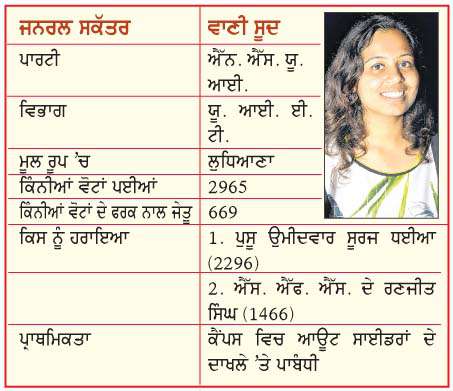 ਜਨਰਲ ਸਕੱਤਰ ਵਾਣੀ ਸੂਦ
ਪਾਰਟੀ ਐੱਨ. ਐੱਸ. ਯੂ.
ਆਈ.
ਵਿਭਾਗ ਯੂ. ਆਈ. ਈ.
ਟੀ.
ਮੂਲ ਰੂਪ ’ਚ ਲੁਧਿਆਣਾ
ਕਿੰਨੀਆਂ ਵੋਟਾਂ ਪਈਆਂ 2965
ਕਿੰਨੀਆਂ ਵੋਟਾਂ ਦੇ ਫਰਕ ਨਾਲ ਜੇਤੂ 669
ਕਿਸ ਨੂੰ ਹਰਾਇਆ 1. ਪੁਸੂ ਉਮੀਦਵਾਰ ਸੂਰਜ ਧਈਆ
(2296)
2. ਐੱਸ. ਐੱਫ. ਐੱਸ. ਦੇ ਰਣਜੀਤ
ਸਿੰਘ (1466)
ਪ੍ਰਾਥਮਿਕਤਾ ਕੈਂਪਸ ਵਿਚ ਆਊਟ ਸਾਈਡਰਾਂ ਦੇ
ਦਾਖਲੇ ’ਤੇ ਪਾਬੰਧੀ